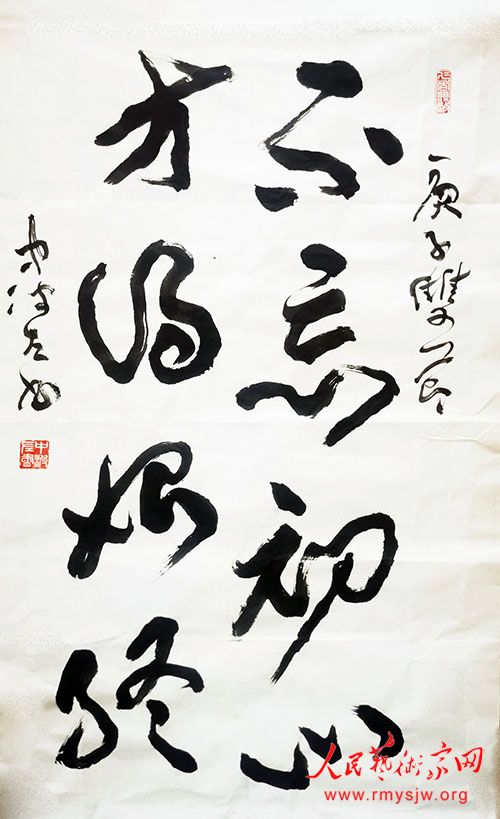 庚子雙節
不忘初心
方得始终
人民藝術家网
www.rmysjw.org